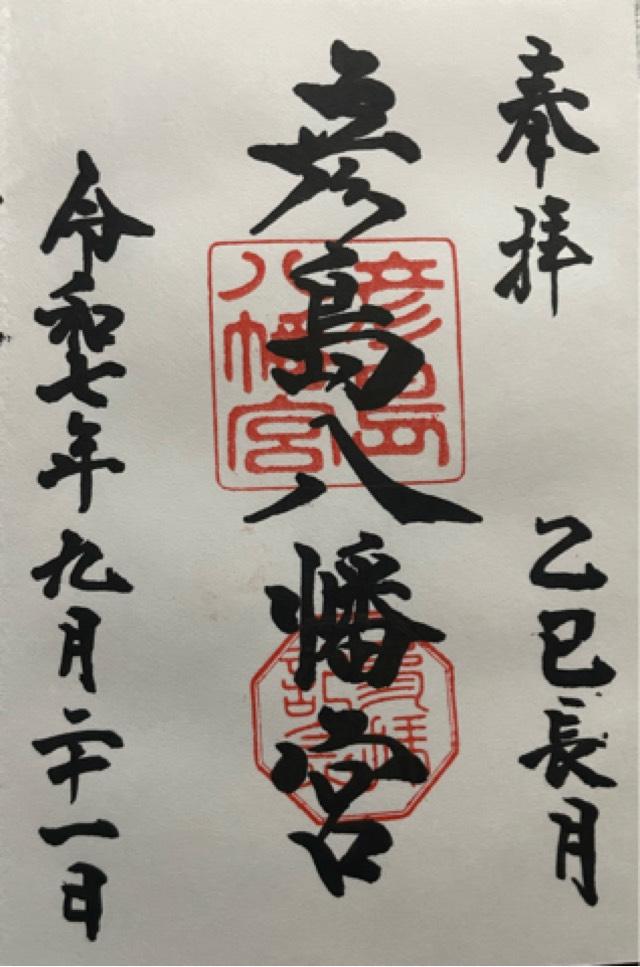 奉拝
乙巳長月
彦島八幡宮
彦島
八幡宮
令和七年九月二十一日